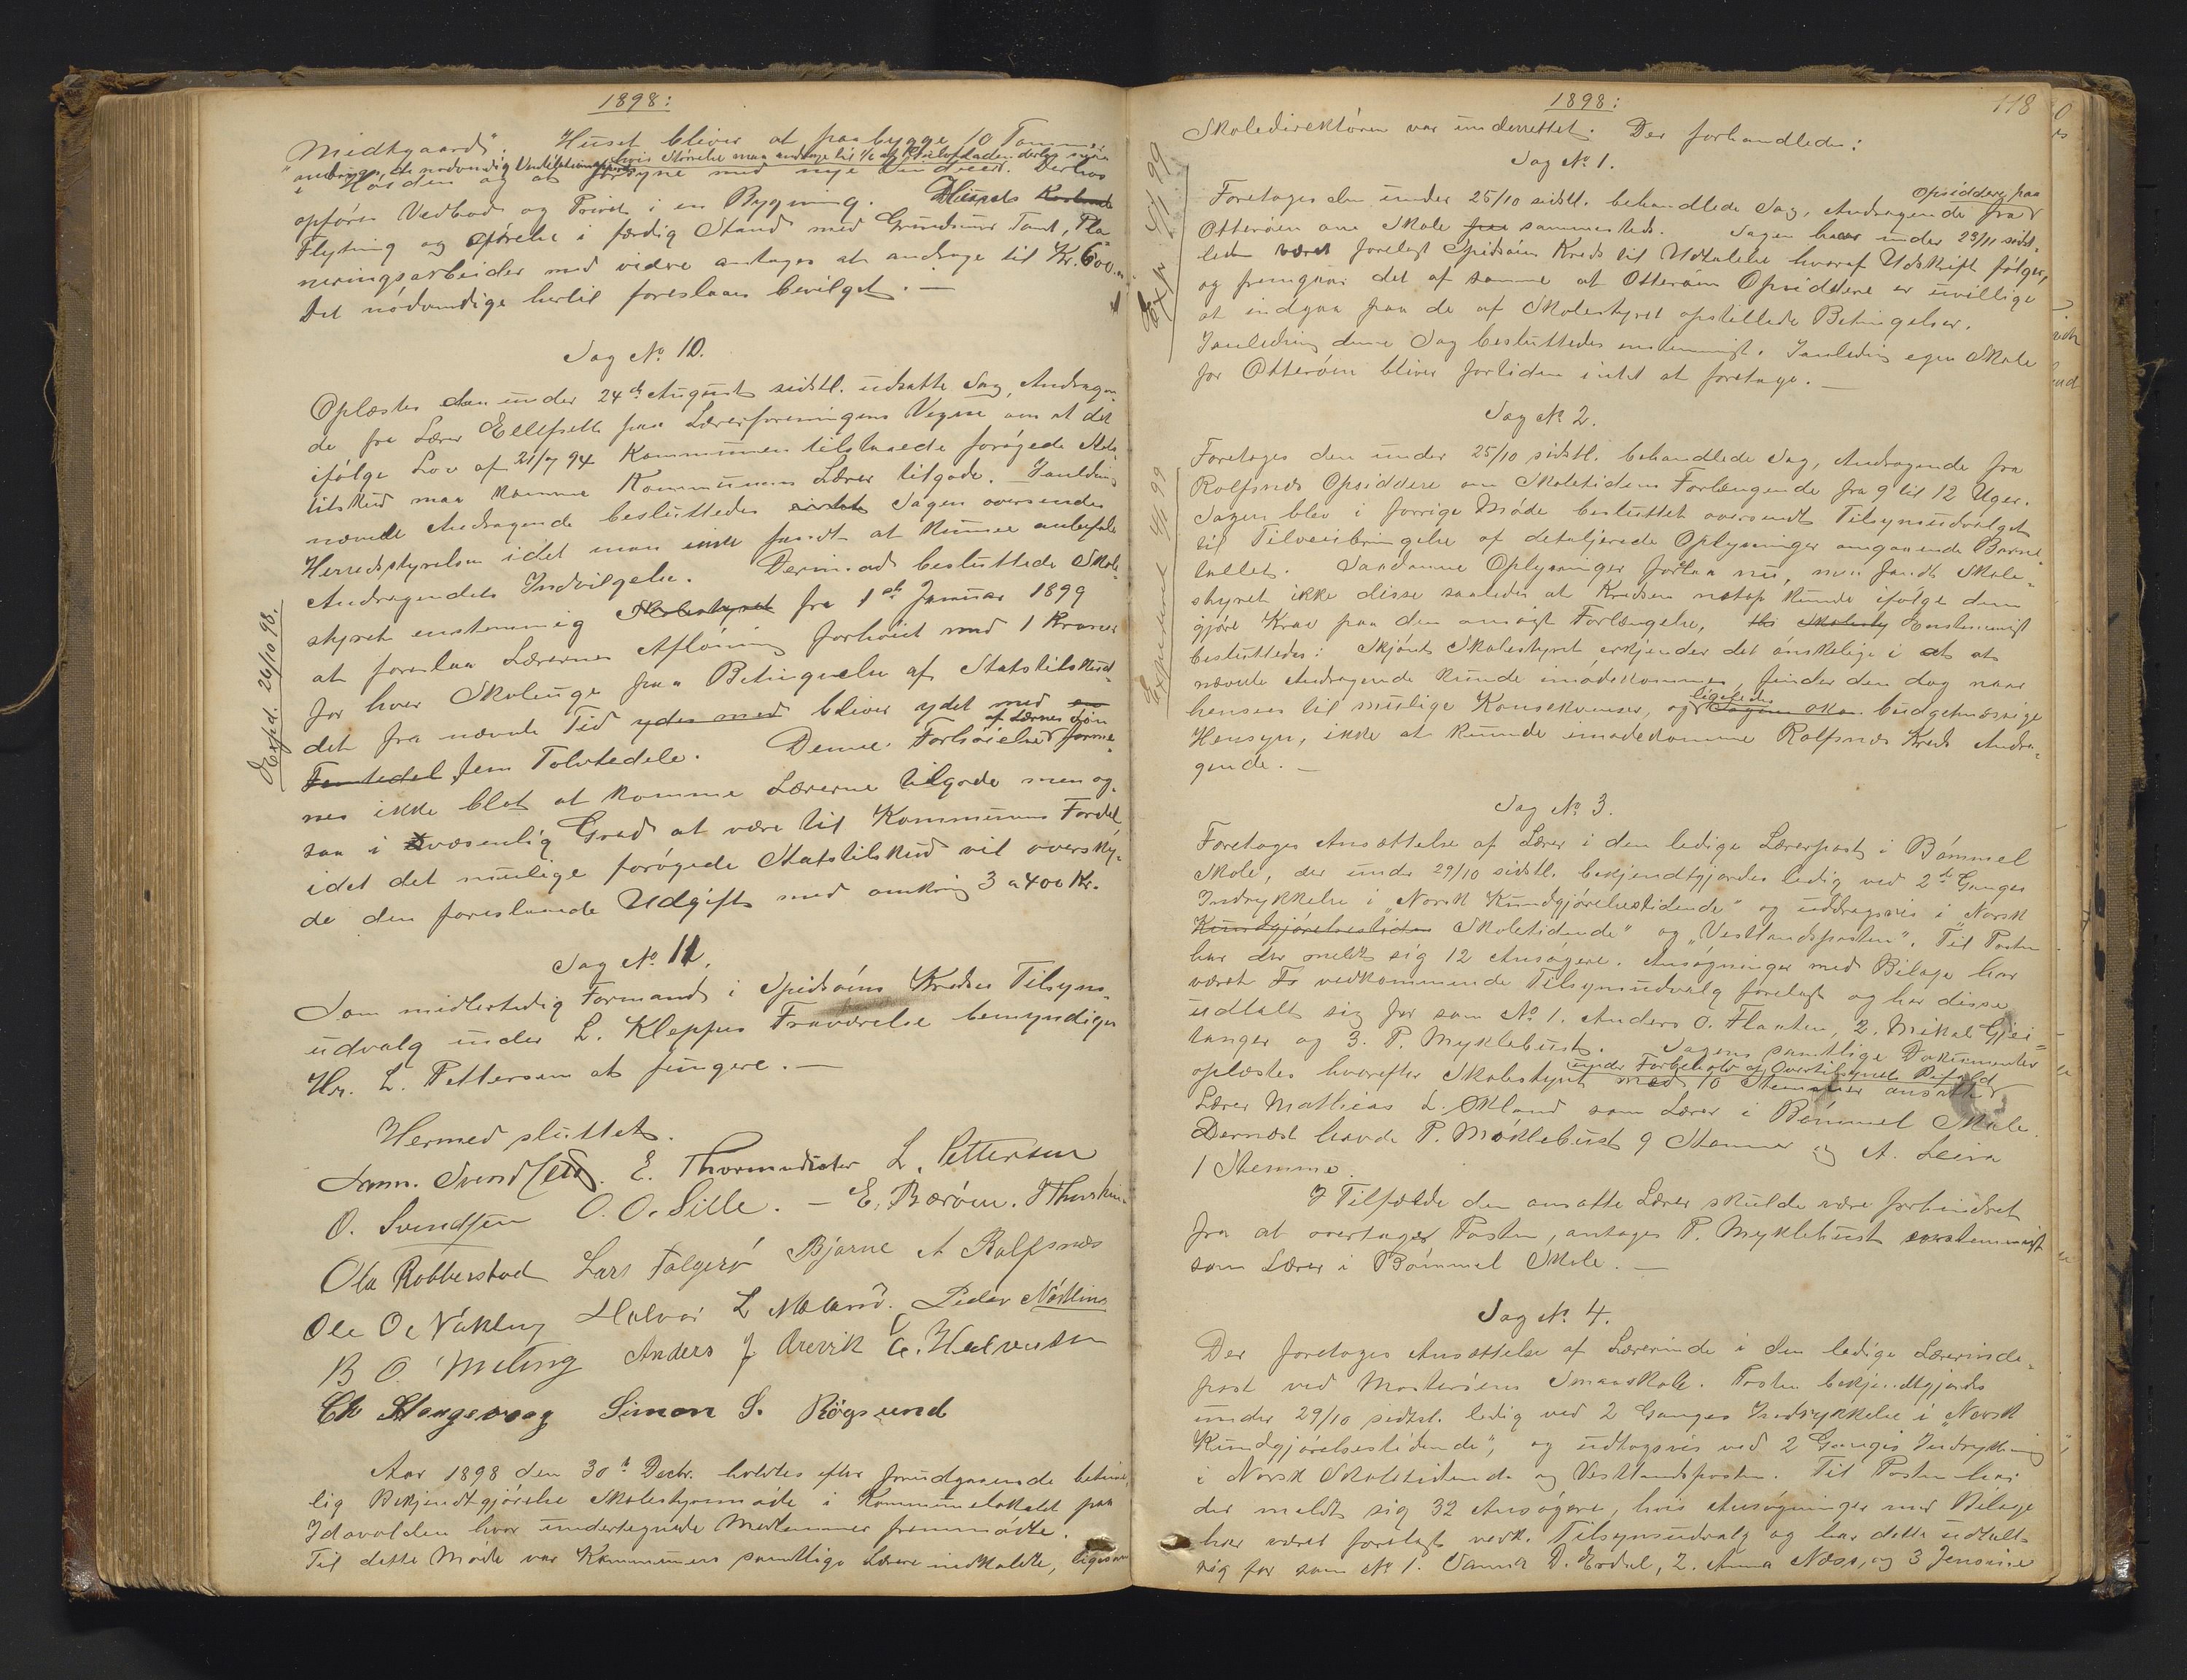 1898:
Midtgaard". Huset bliver at paabygge 10 Tommer
anbringe de nødvendig Ventilationsapparat hvis Størrelse maa andrage til 1/6 af Gulvfladen derhos
i Høiden og at forsyne med nye Vinduer. Derhos
opføres Vedbod og Privet i en Bygning. Husets Kostende
Flytning og Opførelse i færdig Stand med Grundmur Tomt, Pla-
neringsarbeider med videre antages at andrage til Kr. 600.
Det nødvendige hertil foreslaaes bevilget. —
Sag No 10.
Oplæstes den under 24de August sidstl. udsatte Sag, Andragen-
de fra Lærer Ellefsen paa Lærerforeningens Vegne om at det
ifølge Lov af 21/7 94 Kommunen tilstaaede forøgede Stats-
tilskud maa komme Kommunens Lærer tilgode. Ianledning
nævnte Andragende besluttedes Sagen oversendes
Herredsstyrelsen idet man ikke fandt at kunne anbefale
Andragendets Indvilgelse. Derimod besluttede Skole-
styret enstemmig Skolestyret fra 1ste Januar 1899
at foreslaa Lærernes Aflønning forhøiet med 1 Krone
for hver Skoleuge paa Betingelse af Statstilskud-
det fra nævnte Tid ydes med bliver ydet med en
af Lærernes Løn
Femtedel fem Tolvtedele. Denne Forhøielse forme-
nes ikke blot at komme Lærerne tilgode men og-
saa i væsenlig Grad at være til Kommunens Fordel
idet det mulige forøgede Statstilskud vil oversky-
de den foreslaaede Udgift med omkring 3 a 400 Kr.
Expd. 26/10 98.
Sag No 11.
Som midlertidig Formand i Spidsøens Kredses Tilsyns-
udvalg under L. Kleppes Fraværelse bemyndiges
Hr. L. Pettersen at fungere. —
Hermed sluttet.
E. Thormodsæter L. Pettersen
O. Svendsen O. O. Lille. — E. Bærøen.
Ole Robberstad Lars Folgerø Bjarne A Rolfsnes
Ole O. Nøkling Halvor L Mæland. Peder Nøkling
B O Meling Anders J Urevik G. Halvorsen
Ch Stangervaag Simon S. Røgsund
Aar 1898 den 30te Decbr. holdtes efter forudgaaende betime-
lig Bekjendtgjørelse Skolestyremøde i Kommunelokalet paa
Idavolden hvor undertegnede Medlemmer fremmødte.
Til dette Møde var Kommunens samtlige Lærere indkaldte, ligesom
1898:
118
Skoledirektøren var underrettet. Der forhandledes:
Sag No 1.
Opsiddere paa
Foretoges den under 25/10 sidstl. behandlede Sag, Andragende fra
Otterøen om Skole paa sammesteds. Sagen har under 23/11 sidst-
leden været forelagt Spidsøen Kreds til Udtalelse hvoraf Udskrift følger,
og fremgaar det af samme at Otterøens Opsiddere er uvillige
at indgaa paa de af Skolestyret opstillede Betingelser.
Ianledning denne Sag besluttedes enstemmigt. Ianledning egen Skole
for Otterøen bliver fortiden intet at foretage. —
Exp. 4/1 99
Sag No 2.
Foretoges den under 25/10 sidstl. behandlede Sag, Andragende fra
Rolfsnes Opsiddere om Skoletidens Forlængende fra 9 til 12 Uger.
Sagen blev i forrige Møde besluttet oversendt Tilsynsudvalget
til Tilveiebringelse af detaljerede Oplysninger angaaende Barne-
tallet. Saadanne Oplysninger forlaa nu, men fandt Skole-
styret ikke disse saaledes at Kredsen netop kunde ifølge dem
gjøre Krav paa den ansøgte Forlængelse, thi Skolesty Enstemmigt
besluttedes: Skjønt Skolestyret erkjender det ønskelige i at
nævnte Andragende kunde imødekommes, finder den dog naar
ligeledes
hensees til mulige Konsekvenser, og budgetmæssige
Hensyn, ikke at kunde imødekomme Rolfsnes Kreds Andra-
gende. —
Expederet 4/1 99
Sag No 3.
Foretages Ansættelse af Lærer i den ledige Lærerpost i Bømmel
Skole, der under 29/10 sidstl. bekjendtgjordes ledig ved 2de Ganges
Indrykkelse i „Norsk Kundgjørelsestidende" og uddragsvis i „Norsk
Kundgjørelsestiden Skoletidende" og „Vestlandsposten". Til Posten
har der meldt sig 12 Ansøgere. Ansøgninger med Bilage har
været vedkommende Tilsynsudvalg forelagt og har disse
udtalt sig for som No 1. Anders O. Flaaten, 2. Mikal Gjei-
tanger og 3. P. Myklebust. Sagens samtlige Dokumenter
under Forbehold af Overtilsynets Bifald
oplæstes hvorefter Skolestyret med 10 Stemmer ansatte
Lærer Mathias L. Økland som Lærer i Bømmel Skole.
Dernæst havde P. Møklebust 9 Stemmer og A. Leira
1 Stemme.
I Tilfælde den ansatte Lærer skulde være forhindret
fra at overtage Posten, antages P. Myklebust enstemmigt
som Lærer i Bømmel Skole. —
Sag No 4.
Der foretoges Ansættelse af Lærerinde i den ledige Lærerinde-
post ved Mosterøens Smaaskole. Posten bekjendtgjordes
under 29/10 sidstl. ledig ved 2 Ganges Indrykkelse i „Norsk
Kundgjørelsestidende", og udtogsvis ved 2 Ganges Indrykning
i Norsk Skoletidende og Vestlandsposten. Til Posten har
der meldt sig 32 Ansøgere, hvis Ansøgninger med Bilage
har været forelagt vedk. Tilsynsudvalg og har dette udtalt
sig for som No 1. 2. Anna Næss, og 3 Jensine